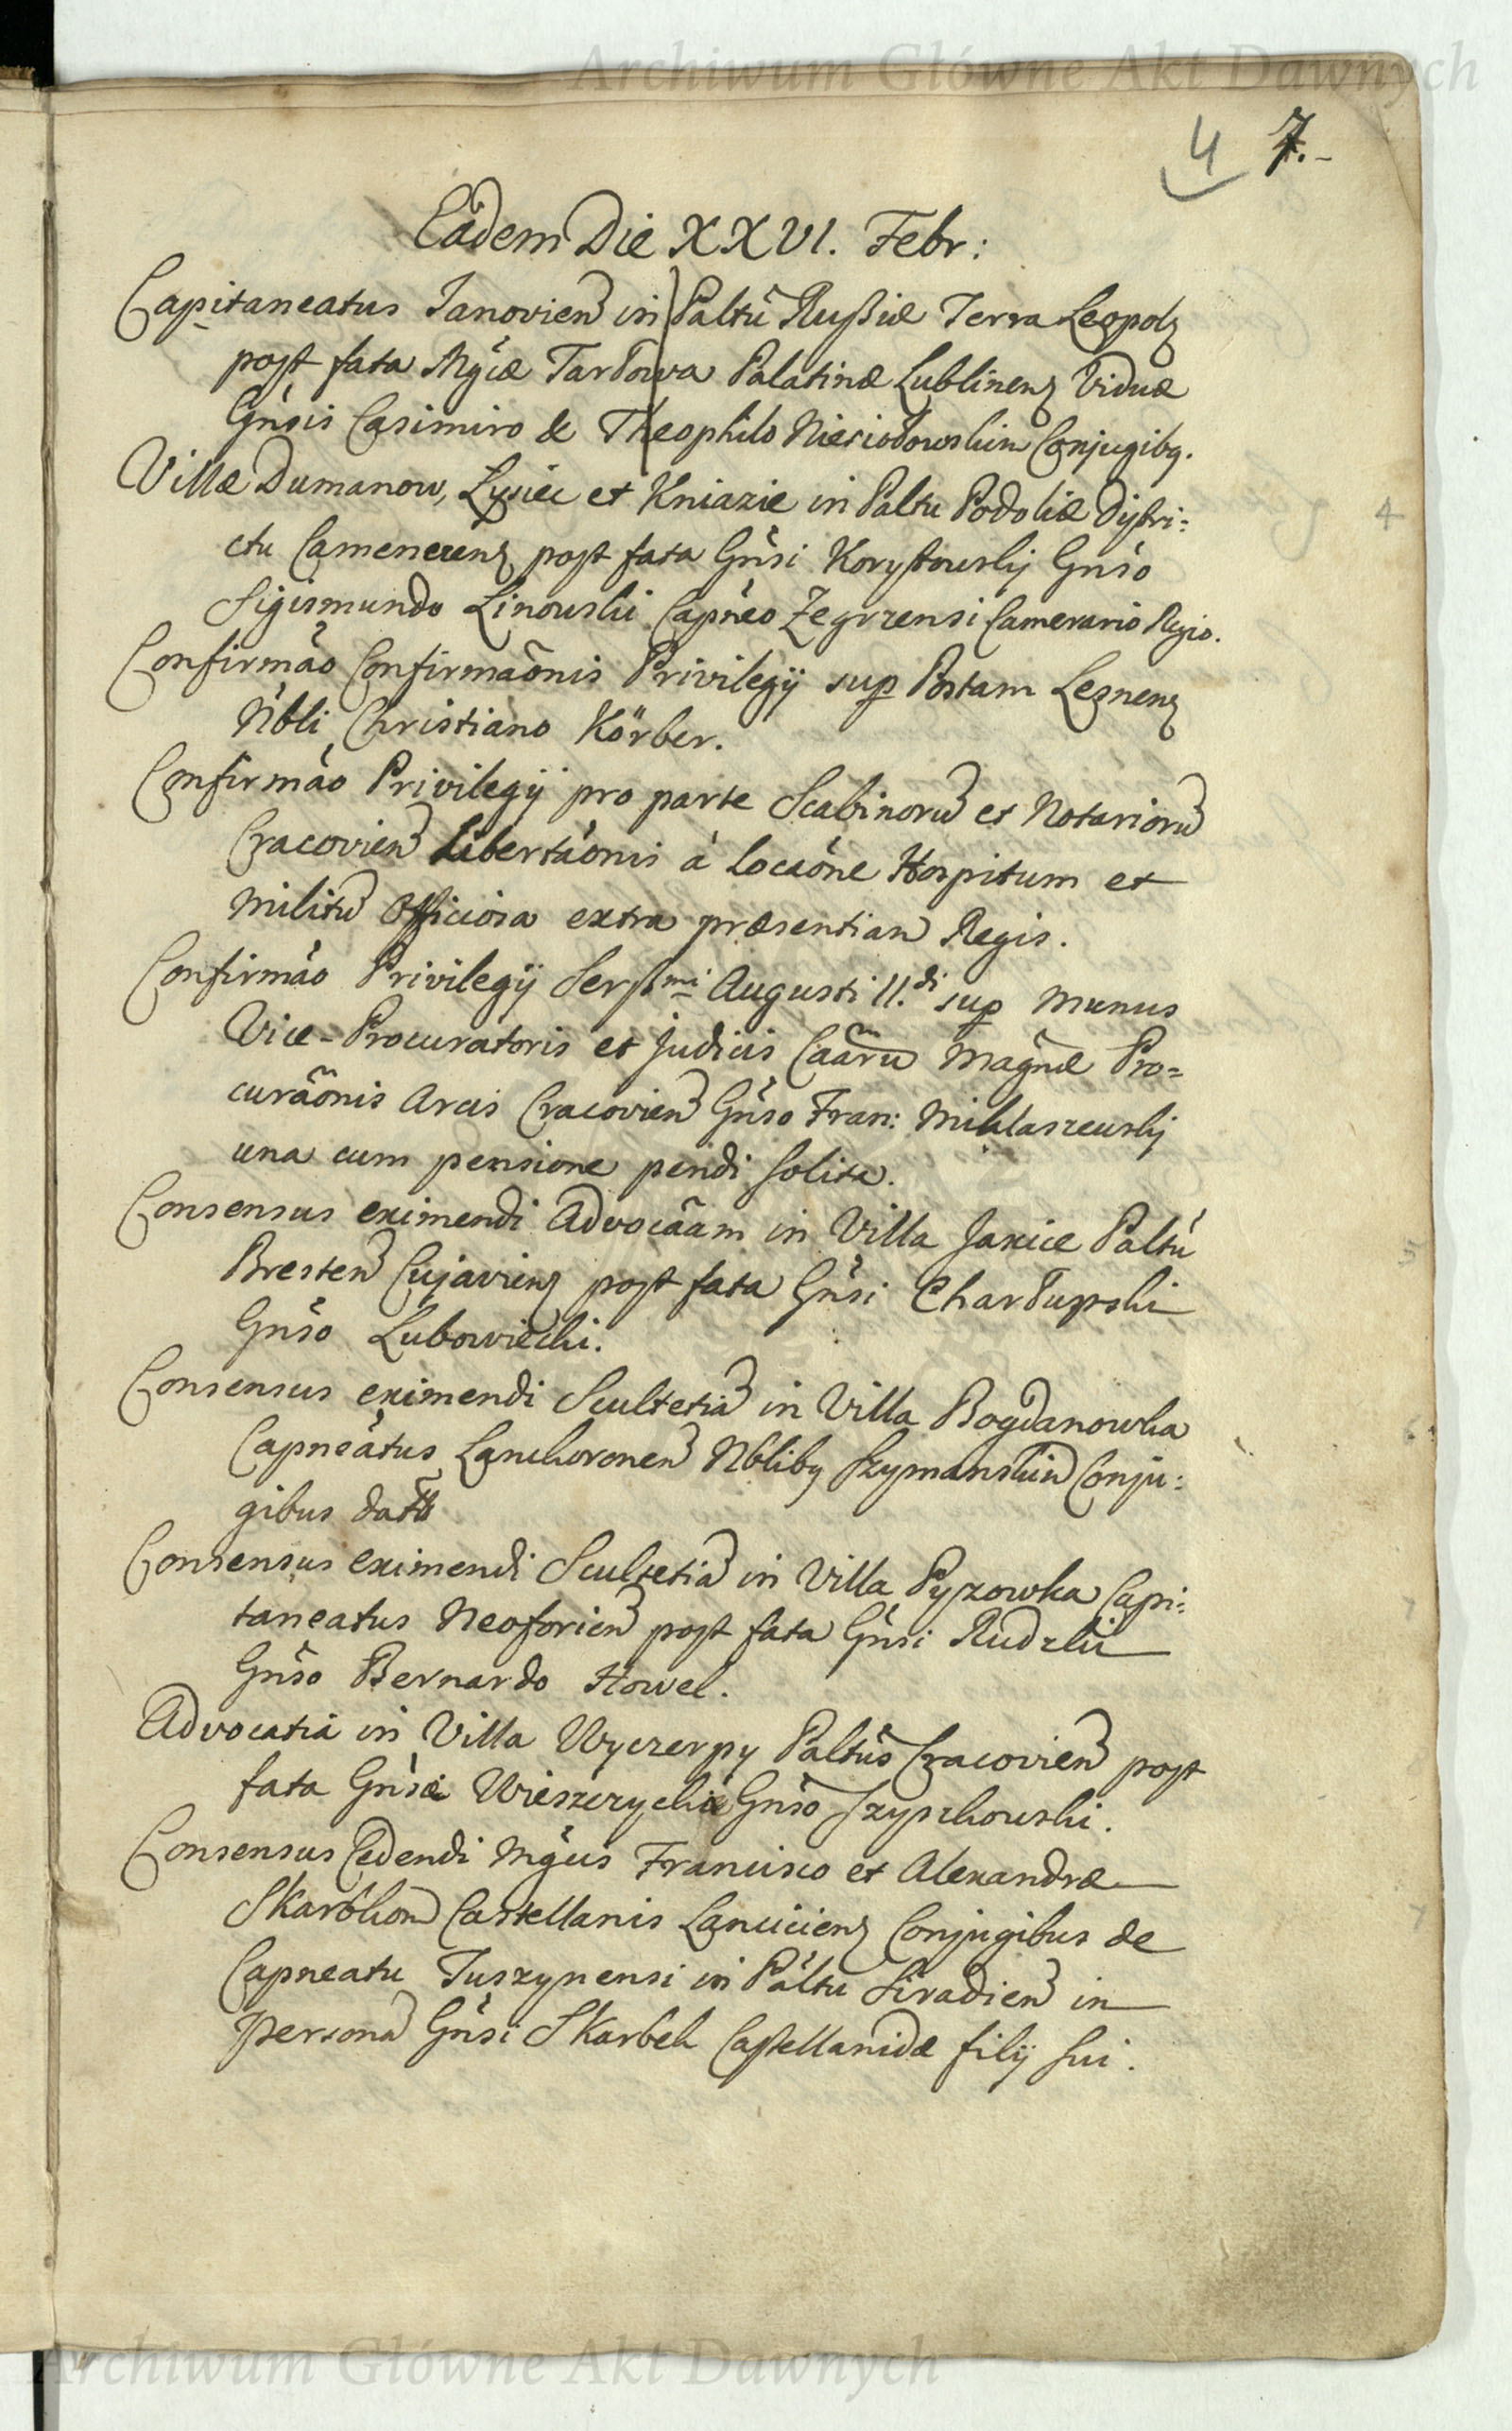 Archiwum Główne Akt Dawnych
4 7.
Eadem Die XXVI. Febr:
Capitaneatus Janovien in Paltu Rußiæ Terra Leopol
post fata Mgcæ Tarłowa Palatinæ Lublinen Viduæ
Gnsis Casimiro & Theophilo Niesiołowskim Conjugibq.
Villæ Dumanow, Łysiec et Kniazie in Paltu Podoliæ Distri=
ctu Camenecen post fata Gnsi Korytowskij Gnso
Sigismundo Linowski Capneo Zegrzensi Camerario Regio.
Confirmao Confirmaonis Privilegij sup Postam Lesnen
Nbli Christiano Körber.
Confirmao Privilegij pro parte Scabinorū et Notariorū
Cracovien Libertaonis à locaone Hospitum et
Militū Officiosa extra præsentiam Regis.
Confirmao Privilegij Serssmi Augusti II.di sup Munus
Vice-Procuratoris et Judicis Caarū Magnæ Pro=
curaonis Arcis Cracovien Gnso Fran: Miklaszewskij
una cum pensione pendi solita.
Consensus eximendi Advocaam in Villa Janice Paltu
Bresten Cujavien post fata Gnsi Charłupski
Gnso Lubowiecki.
Consensus eximendi Scultetiā in Villa Bogdanowka
Capneatus Lanckoronen Nblibq Szymanskim Conju:
gibus datū
Consensus eximendi Scultetiā in Villa Pyzowka Capi:
taneatus Neoforien post fata Gnsi Rudzki
Gnso Bernardo Howel.
Advocatia in Villa Wyczerpy Paltus Cracovien post
fata Gnsæ Wieszczyckiæ Gnso Szyszkowski.
Consensus Cedendi Mgcis Francisco et Alexandræ
Skarbkom Castellanis Lancicien Conjugibus de
Capneatu Tuszynensi in Paltu Siradien in
Personā Gnsi Skarbek Castellanidæ filij sui.
Archiwum Główne Akt Dawnych